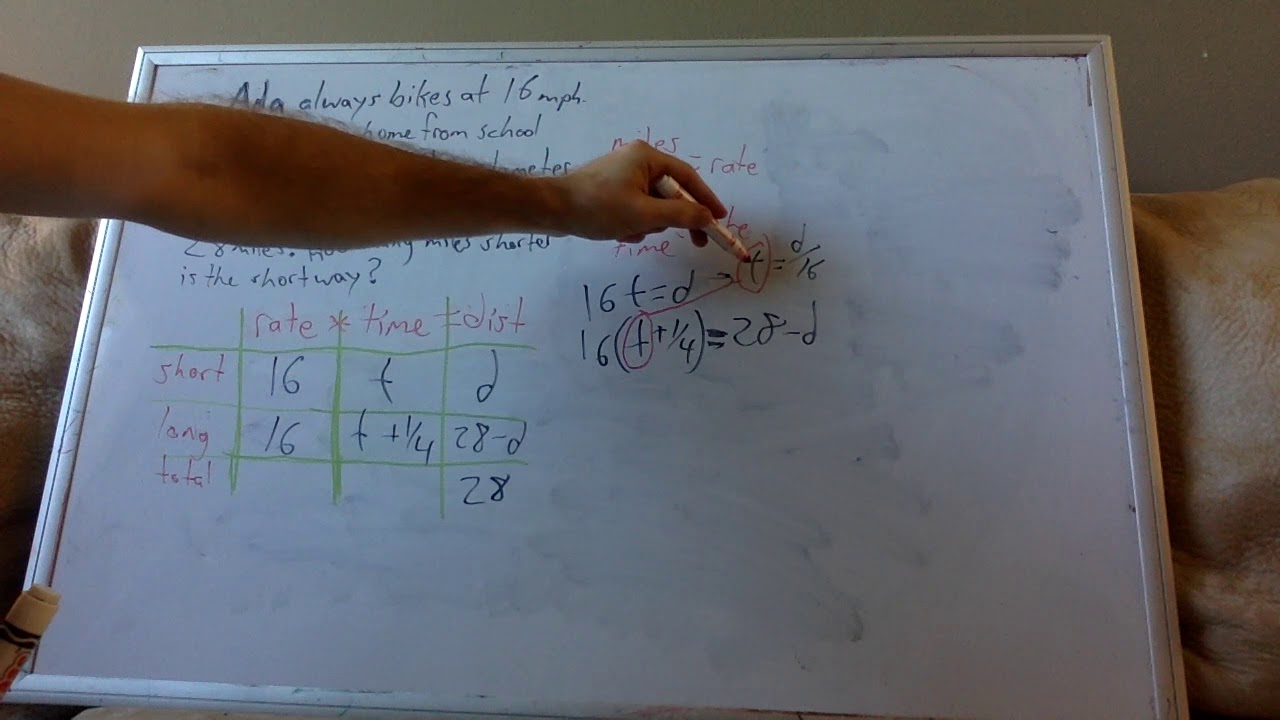 Ada always bikes at 16 mph.
home from school
28 miles. How many miles shorter
is the short way?
miles
= rate
time
t = d/16
16 t = d
16(t + 1/4) = 28-d
rate * time = dist
short 16 t d
long 16 t + 1/4 28-d
total 28